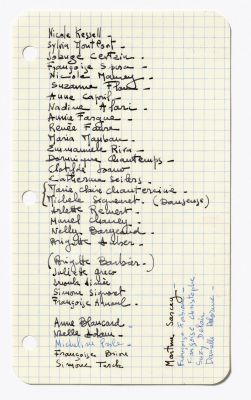 Nicole Kessell -
Sylvia Montfort -
Solange Certain -
Françoise Spira -
Nicole Maurey -
Suzanne Flon -
Anne Caprile -
Nadine Alari -
Annie Fargue -
Renée Faure -
Maria Mauban -
Emmanuele Riva -
Dominique Chautemps -
Clotilde Joano
Catherine Sellers -
Marie Claire Chautereinie -
(Michele Signoret - (Danseuse)
Arlette Remert -
Muriel Chaney -
Nelly Borgeaud -
Brigitte Auber -
(Brigitte Barbier -)
Juliette Greco
Anouk Aimée -
Simone Signoret
Françoise Arnoul -
Anne Blancard -
Noelle Adam -
Micheline Presle -
Françoise Brion
Simone Turck -
Martine Sarcey -
Françoise
Françoise Christophe
Suzy Delair
Danielle Delorme -